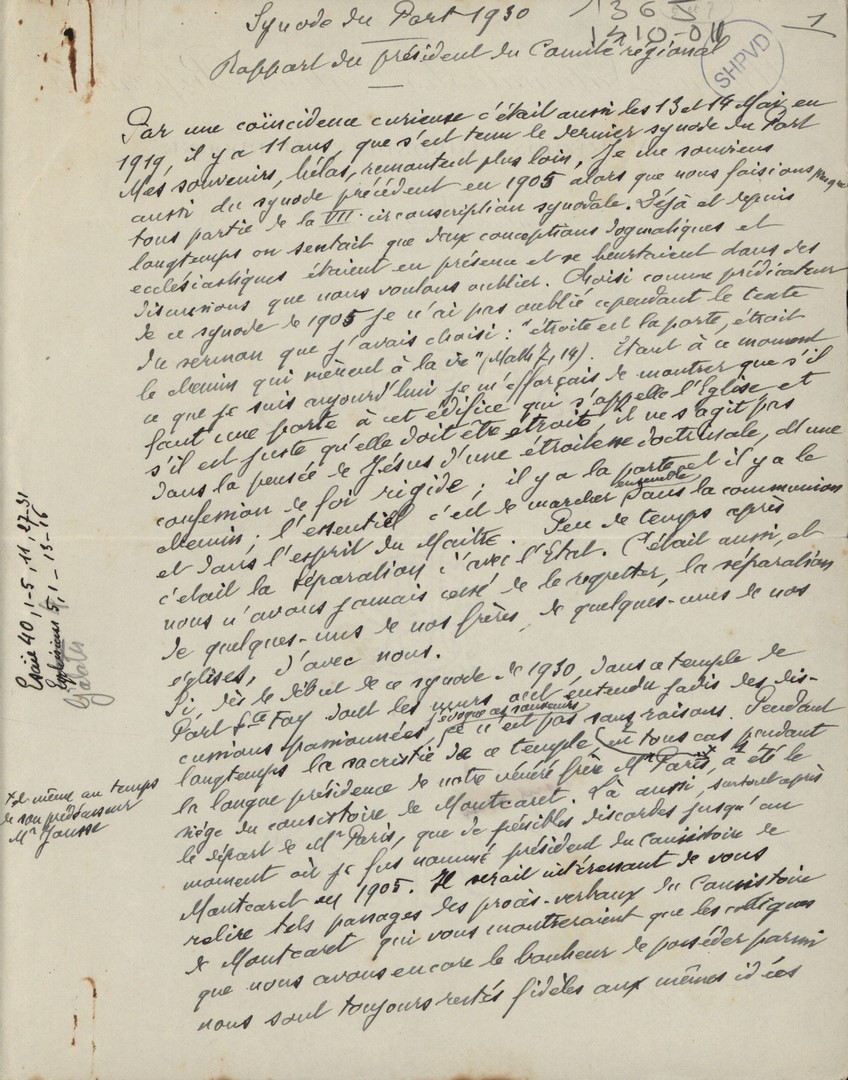 Synode du Port 1930
1365
1410-01
1
SHPVD
Rapport du président du Comité régional
Par une coïncidence curieuse c'était aussi les 13 et 14 Mai, en
1919, il y a 11 ans, que s'est tenu le dernier synode du Port
Mes souvenirs, hélas, remontent plus loin. Je me souviens
aussi du synode précédent en 1905 alors que nous faisions presque
tous partie de la VII circonscription synodale. Déjà et depuis
longtemps on sentait que deux conceptions dogmatiques et
ecclésiastiques étaient en présence et se heurtaient dans des
discussions que nous voulons oublier. Choisi comme prédicateur
de ce synode de 1905 je n'ai pas oublié cependant le texte
du sermon que j'avais choisi : "étroite est la porte, étroit
le chemin qui mènent à la vie" (Math 7, 14). Etant à ce moment
ce que je suis aujourd'hui je m'efforçais de montrer que s'il
faut une porte à cet édifice qui s'appelle l'Eglise et
s'il est juste qu'elle doit être étroite, il ne s'agit pas
dans la pensée de Jésus d'une étroitesse doctrinale, d'une
confession de foi rigide ; il y a la porte et il y a le
chemin ; l'essentiel c'est de marcher ensemble dans la communion
et dans l'esprit du Maître. Peu de temps après
c'était la séparation d'avec l'Etat. C'était aussi, et
nous n'avons jamais cessé de le regretter, la séparation
de quelques-uns de nos frères, de quelques-unes de nos
églises, d'avec nous.
Si, dès le début de ce synode de 1930, dans ce temple de
Port Ste Foy dont les murs ont entendu jadis des dis-
cussions passionnées, j'évoque ces souvenirs, ce n'est pas sans raisons. Pendant
longtemps la sacristie de ce temple, en tous cas pendant
la longue présidence de notre vénéré frère Mr Paris, x a été le
siège du consistoire de Montcaret. Là aussi, surtout après
le départ de Mr Paris, que de pénibles discordes jusqu'au
moment où je fus nommé président du Consistoire de
Montcaret en 1905. Il serait intéressant de vous
relire tels passages des procès-verbaux du Consistoire
de Montcaret qui vous montreraient que les collègues
que nous avons encore le bonheur de posséder parmi
nous sont toujours restés fidèles aux mêmes idées
Esaïe 40, 1-5, 11, 27-31
Ephésiens 5, 1-13-16
Galates
x et même au temps
de son prédécesseur
Mr Jausse